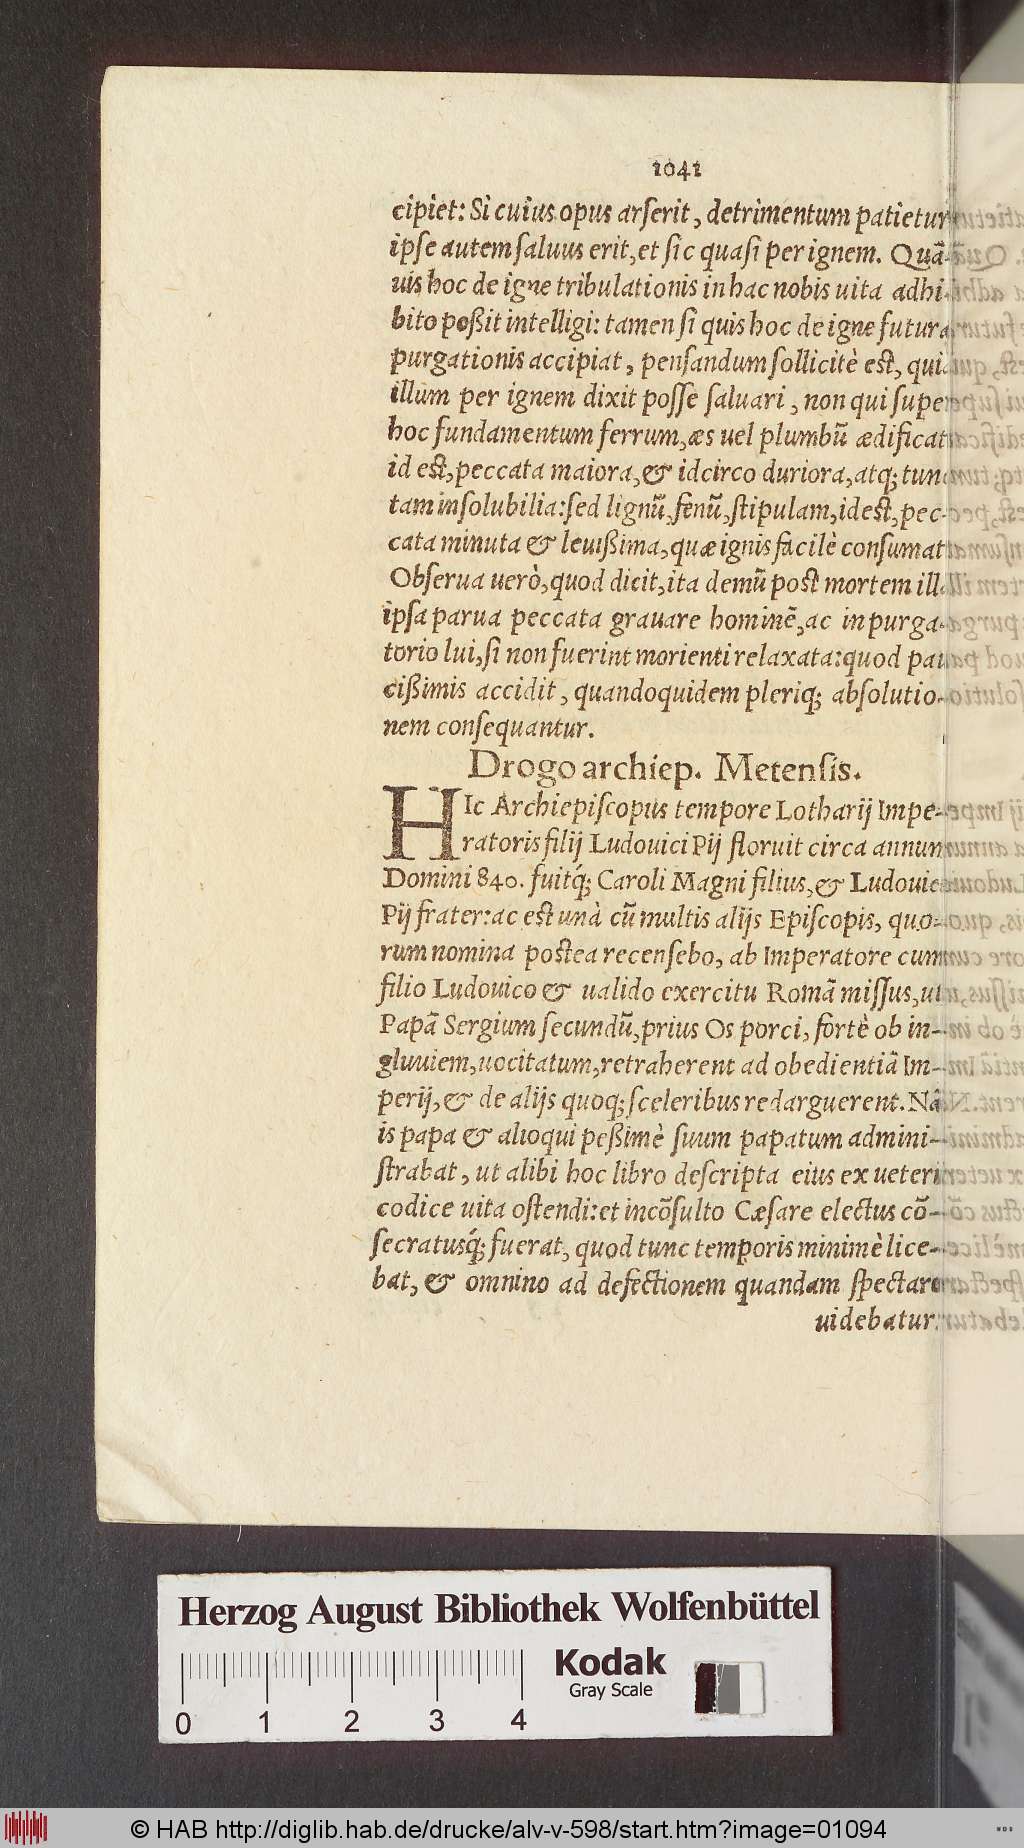 1041
cipiet: Si cuius opus arserit, detrimentum patietur
ipse autem saluus erit, et sic quasi per ignem. Quã-
uis hoc de igne tribulationis in hac nobis uita adhi-
bito poßit intelligi: tamen si quis hoc de igne futuræ
purgationis accipiat, pensandum sollicitè est, quia
illum per ignem dixit posse saluari, non qui super
hoc fundamentum ferrum, æs uel plumbũ ædificat
id est, peccata maiora, & idcirco duriora, atq; tunc
tam insolubilia: sed lignũ, fenũ, stipulam, id est, pec-
cata minuta & leuißima, quæ ignis facilè consumat
Obserua uerò, quod dicit, ita demũ post mortem illa
ipsa parua peccata grauare hominẽ, ac in purga-
torio lui, si non fuerint morienti relaxata: quod pau
cißimis accidit, quandoquidem pleriq; absolutio-
nem consequantur.
Drogo archiep. Metensis.
HIc Archiepiscopus tempore Lotharij Impe-
ratoris filij Ludouici Pij floruit circa annum
Domini 840. fuitq́; Caroli Magni filius, & Ludouici
Pij frater: ac est unà cũ multis alijs Episcopis, quo-
rum nomina postea recensebo, ab Imperatore cum
filio Ludouico & ualido exercitu Romã missus, ut
Papã Sergium secundũ, prius Os porci, fortè ob in-
gluuiem, uocitatum, retraherent ad obedientiã Im-
perij, & de alijs quoq; sceleribus redarguerent. Nã
is papa & alioqui peßimè suum papatum admini-
strabat, ut alibi hoc libro descripta eius ex ueteri
codice uita ostendi: et incõsulto Cæsare electus cõ-
secratusq́; fuerat, quod tunc temporis minimè lice-
bat, & omnino ad defectionem quandam spectare
uidebatur.
Herzog August Bibliothek Wolfenbüttel
Kodak
Gray Scale
0 1 2 3 4
© HAB http://diglib.hab.de/drucke/alv-v-598/start.htm?image=01094